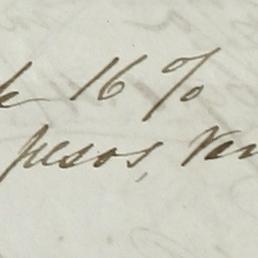 16 %
pesos, ven